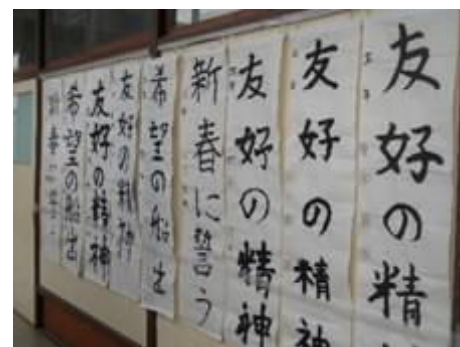 友好の精
友好の精神
友好の精神
新春に誓う
希望の船出
友好の精神
友好の精神
希望の船出
新春に誓う